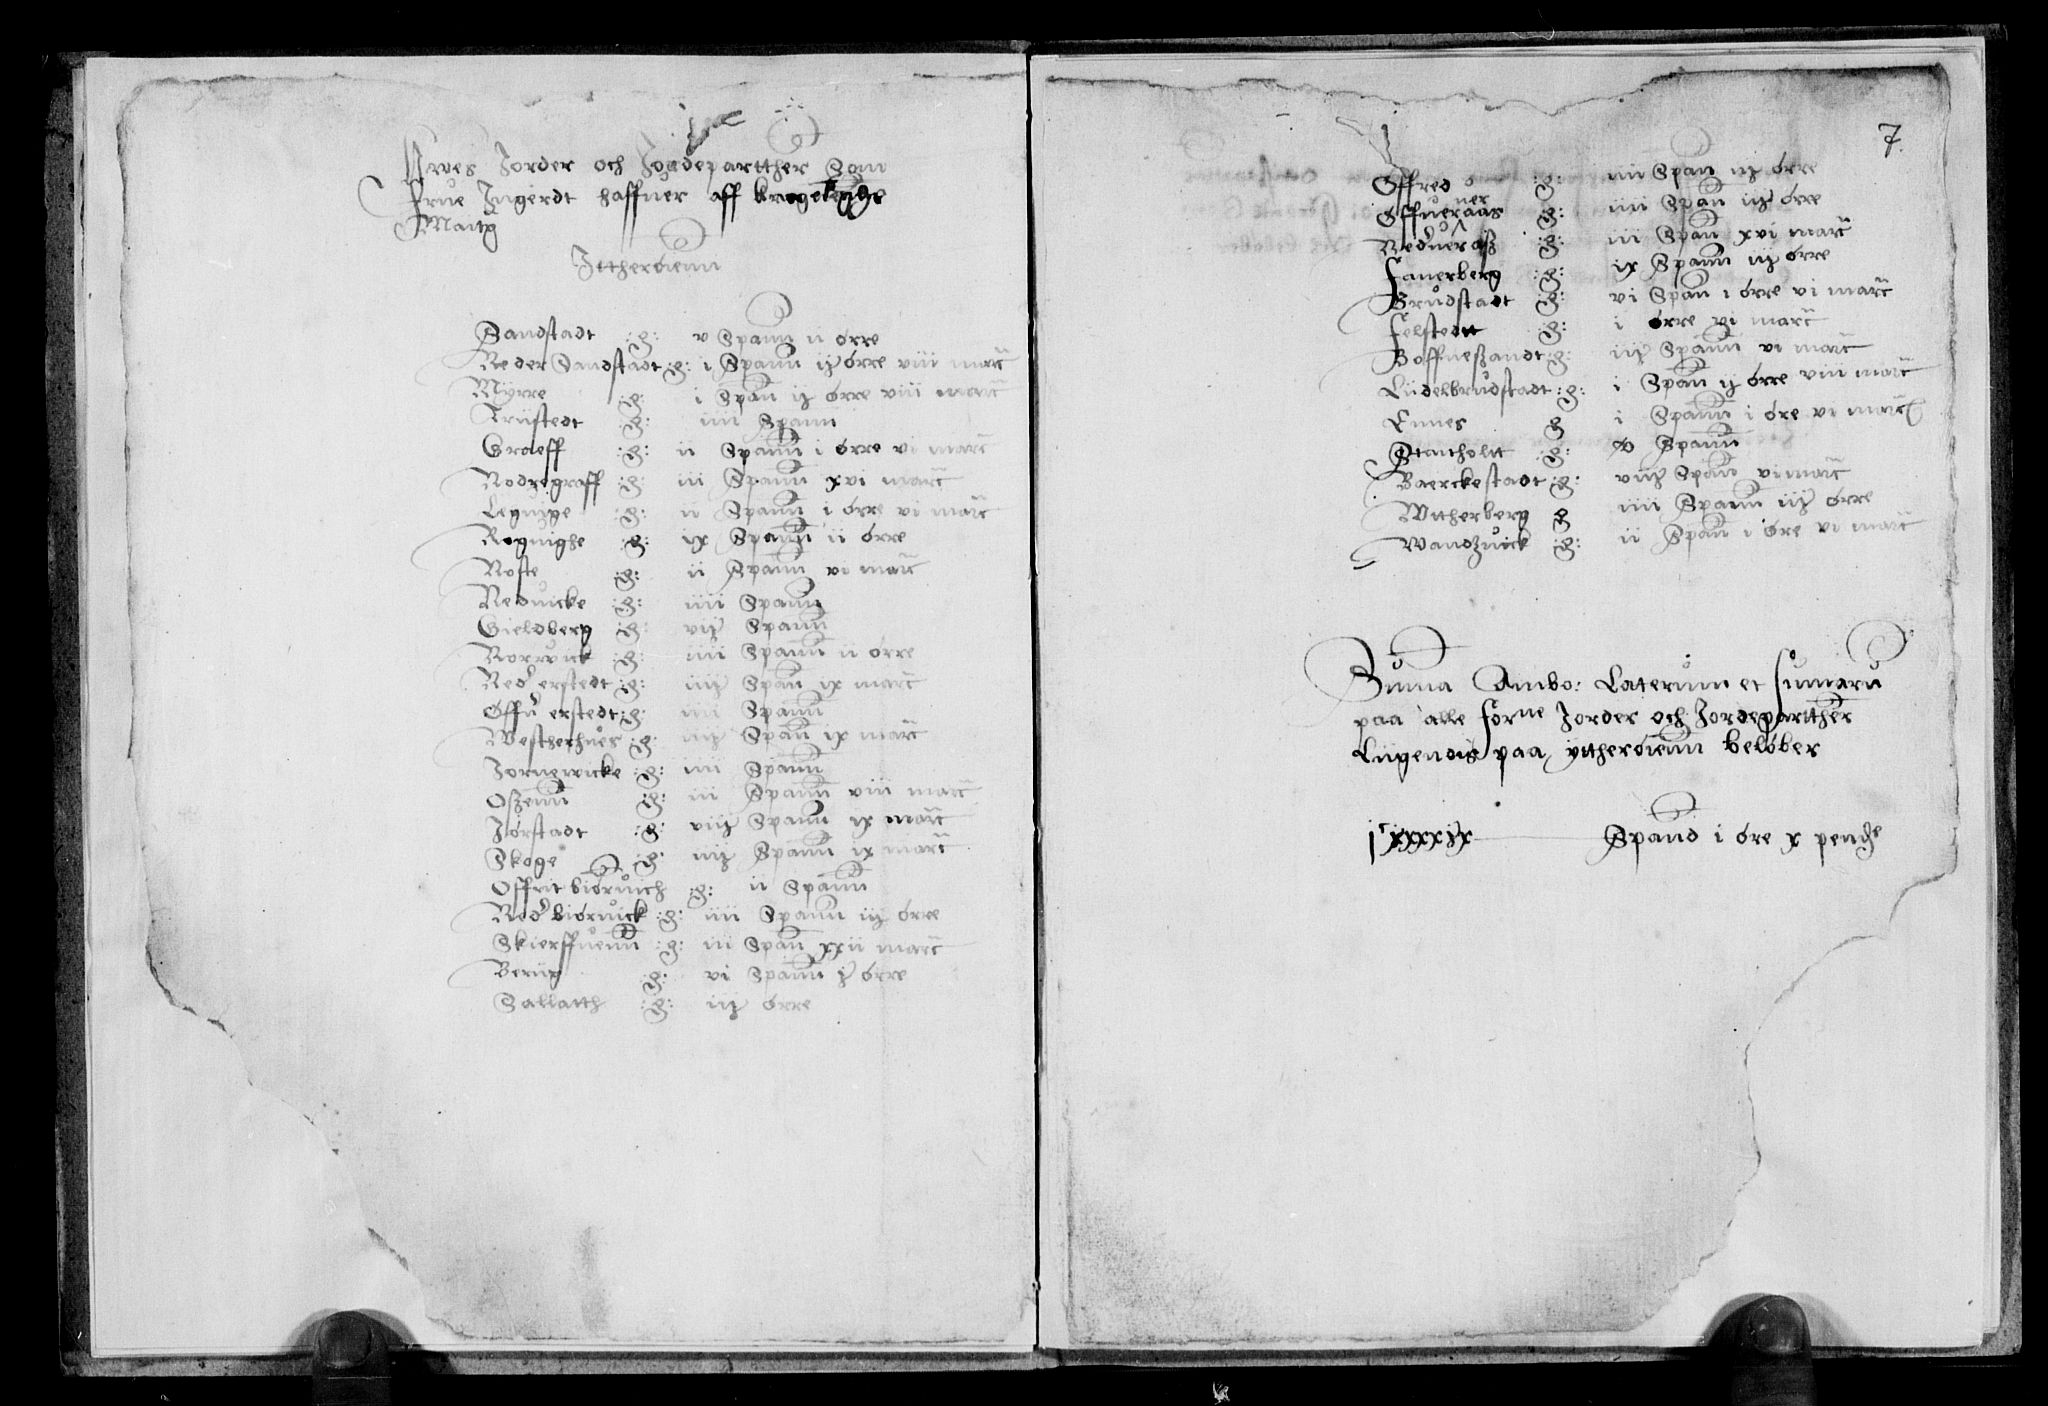 Arves Jorder och Jordepartther Som
frue Ingerdt haffuer aff
Maitz
Ittherøienn
Sandstadt :g: v Spann ii ørre
Neder Sandstadt :g: i Spann iij ørre viii marc
Myrre :g: i Span ij ørre viii marc
Triistedt :g: iiii Spann
Groleff :g: ii Spann i ørre vi marc
Nodregraff :g: iii Spann xvi marc
Legnige :g: ii Spann i ørre vi marc
Rognighe :g: ix Spann ii ørre
Rofte :g: ii Spann vi marc
Neduicke :g: iiii Spann
Gieldberg :g: vij Spann
Norrvick :g: iiii Spann ii ørre
Ned erstedt :g: iiij Span ix marc
Øffu erstedt :g: iiii Spann
Westherhues :g: iiij Span ix marc
Jørnewicke :g: iiii Spann
Oszenn :g: iii Spann viii marc
Jørstadt :g: viij Spann ix marc
Skoge :g: iiij Spann ix marc
Offrit biøruich :g: ii Spann
Ned biøruick :g: iiii Spann iij ørre
Skierffuenn :g: iii Span xxii marc
Berug :g: vi Spann j ørre
Sallatth :g: iij ørre
7
Øffred :g: iiii Span iij ørre
Øffueraas :g: iiii Span iij ørre
Neduerasz :g: iii Span xvi marc
Fanerberg :g: ix Spann iij ørre
Brudstadt :g: vi Span i ørre vi marc
Felstedt :g: i ørre vi marc
Boffneszandt :g: iij Spann vi marc
Liidelbrudstadt :g: i Span ij ørre viii marc
Ennes g i Spann i øre vi marc
Stanholtt :g: v Spann
Baerckestadt :g: viij Spann vi marc
Wttherberg g iiii Spann iij ørre
Wandzuick :g: ii Span i øre vi marc
Summa Ambo: Laterum et sumaru
paa alle forne Jorder och Jordepartther
Liigendis paa yttherøienn beløber
jcxxxxix Spand i øre x pennge